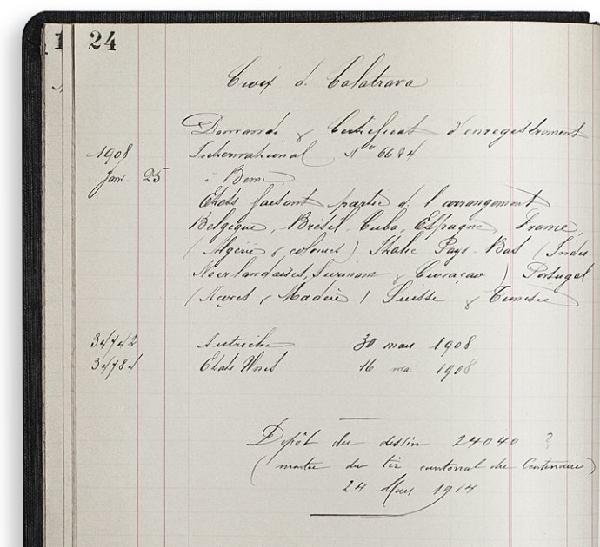 24
Croix de Calatrava
Demande & Certificat d'enregistrement
1908 International No 6684
Janv. 25 à Berne
Etats faisant partie de l'arrangement
Belgique, Brésil, Cuba, Espagne, France,
(Algérie & colonies) Italie Pays-Bas (Indes
Néerlandaises, Surinam & Curaçao) Portugal
(Açores & Madère) Suisse & Tunisie
34742 Autriche 30 mars 1908
34784 Etats Unis 16 1908
Dépôt du dessin 24040 ?
(montre du tir cantonal du Centenaire)
24 1914